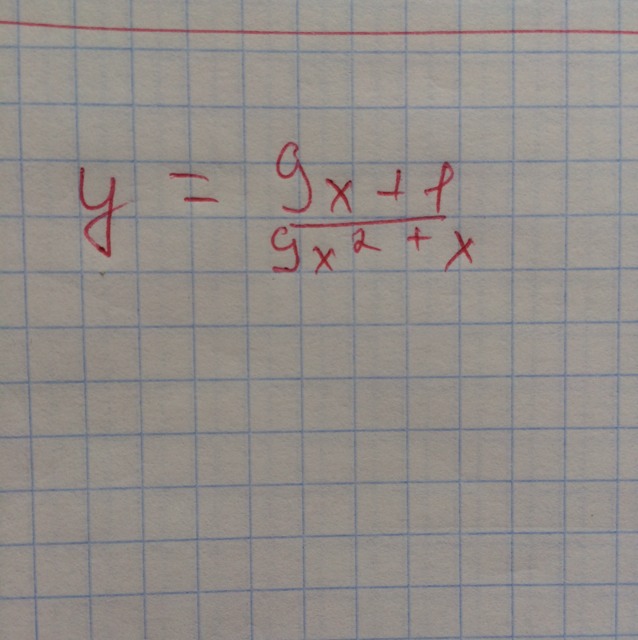 y = \frac{9x + 1}{9x^2 + x}